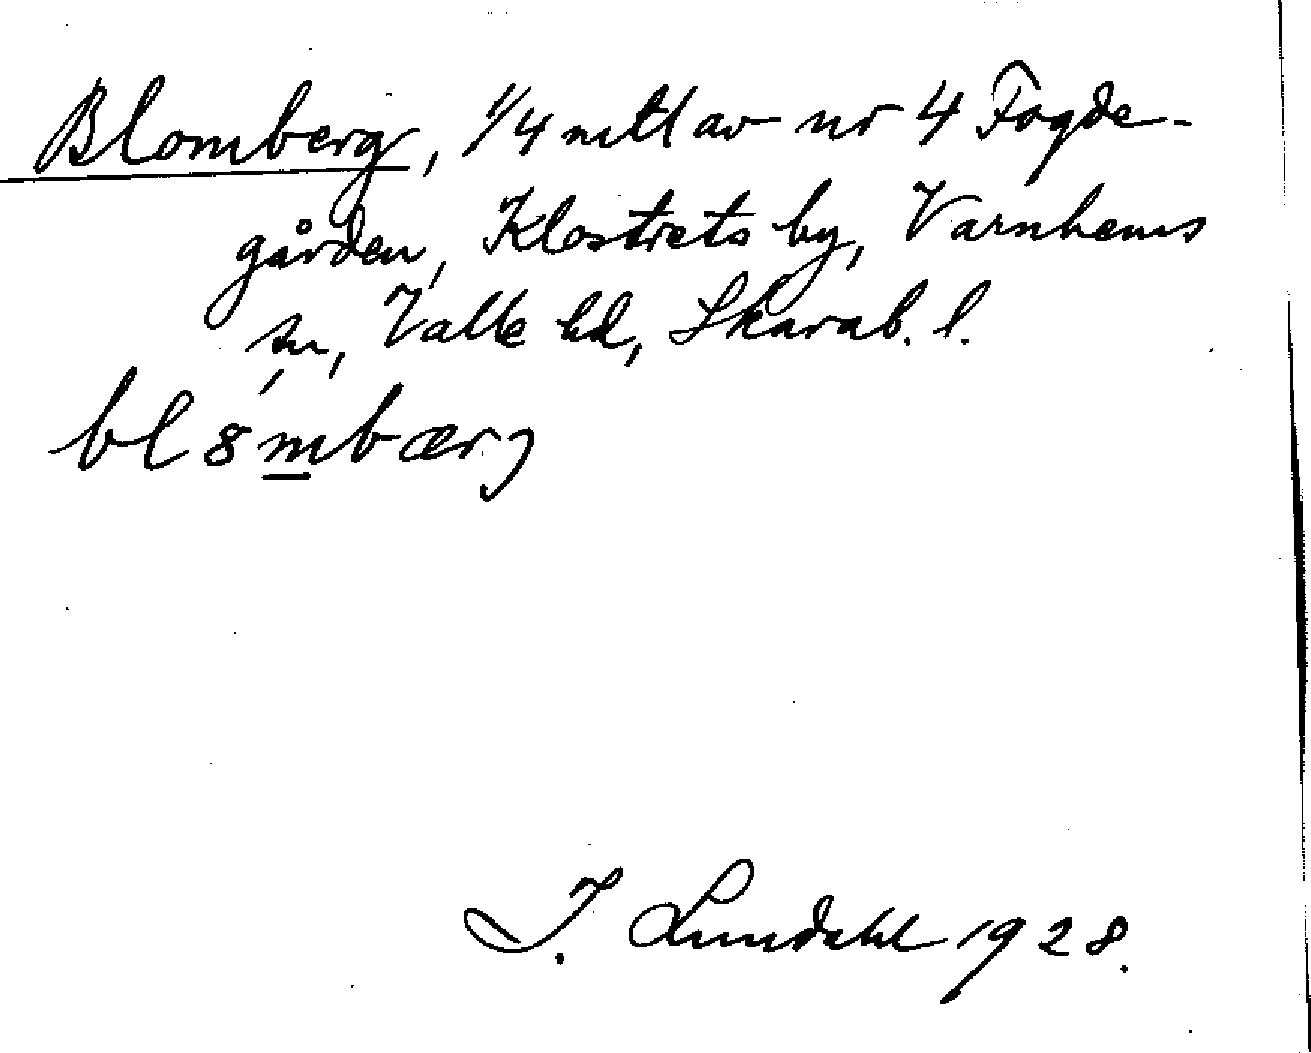 Blomberg, 1/4 mtl av nr 4 Fogde-
gården, Klostrets by, Varnhems
sn, Valle hd, Skarab. l.
bl8́mbærj
I. Lundahl 1928.